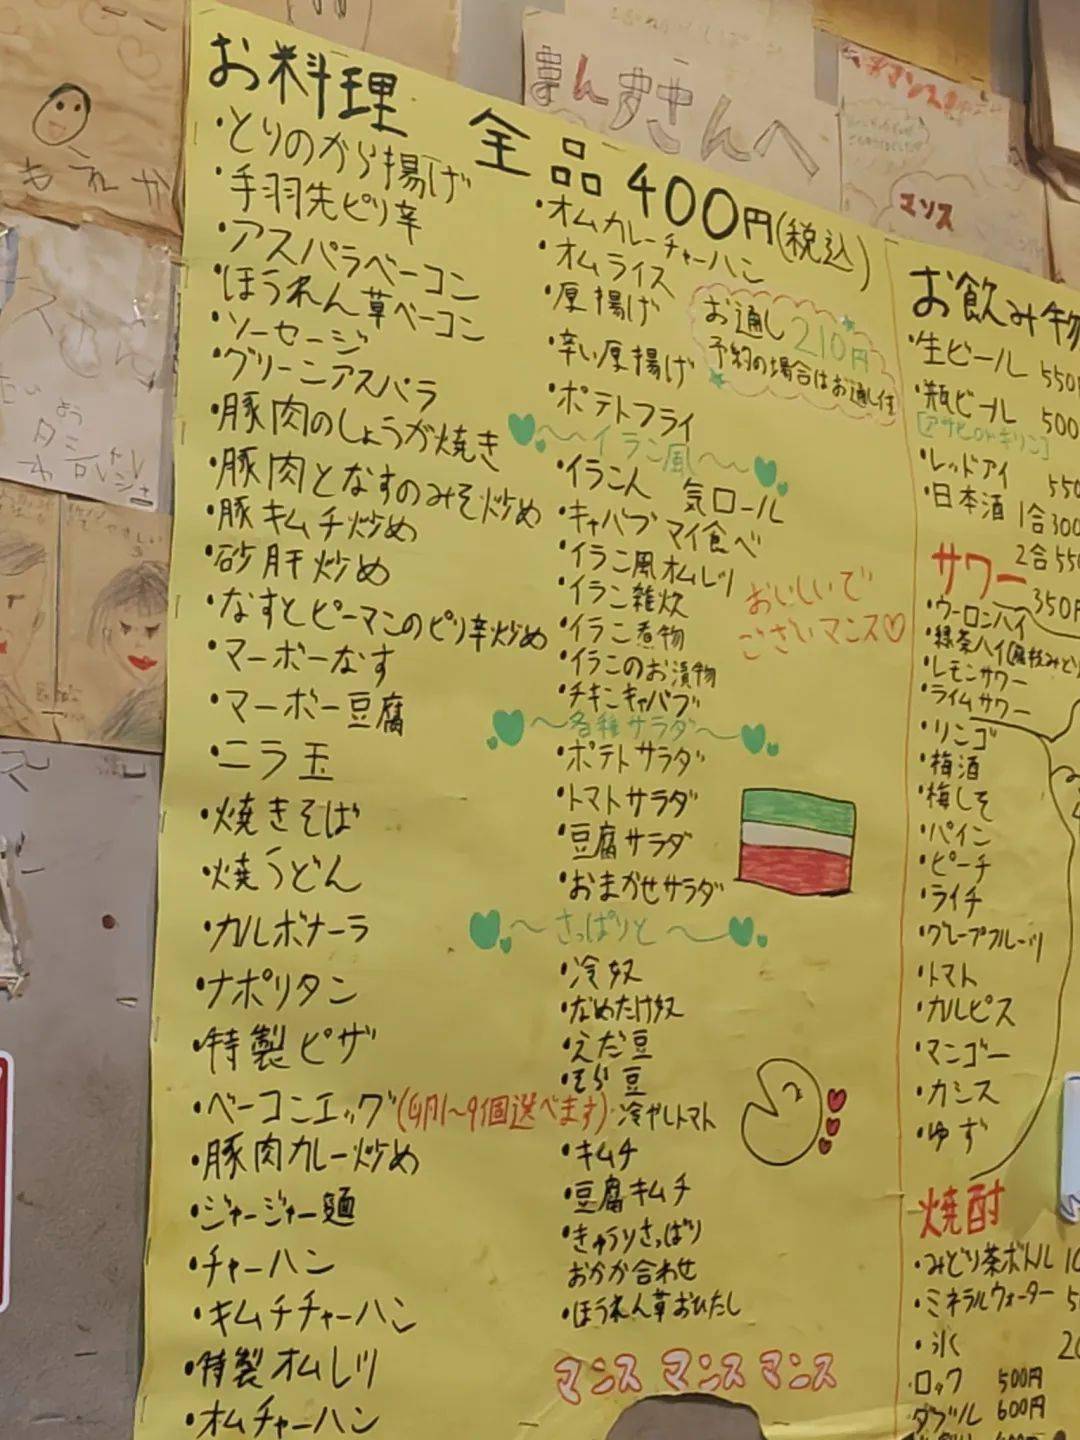 お料理 全品400円(税込)
・とりのから揚げ
・手羽先ピリ辛
・アスパラベーコン
・ほうれん草ベーコン
・ソーセージ
・グリーンアスパラ
・豚肉のしょうが焼き
・豚肉となすのみそ炒め
・豚キムチ炒め
・砂肝炒め
・なすとピーマンのピリ辛炒め
・マーボーなす
・マーボー豆腐
・ニラ玉
・焼きそば
・焼うどん
・カルボナーラ
・ナポリタン
・特製ピザ
・ベーコンエッグ(卵1〜9個選べます)
・豚肉カレー炒め
・ジャージャー麺
・チャーハン
・キムチチャーハン
・特製オムレツ
・オムチャーハン
・オムカレーチャーハン
・オムライス
・厚揚げ
・辛い厚揚げ
・ポテトフライ
お通し210円
予約の場合はお通し付
〜イラン風〜
・イラン人 気ロール
・キャバブ マイ食べ
・イラン風オムレツ
・イラン雑炊
・イラン煮物
・イランのお漬物
・チキンキャバブ
おいしいで
ございマンス♡
〜各種サラダ〜
・ポテトサラダ
・トマトサラダ
・豆腐サラダ
・おまかせサラダ
〜さっぱりと〜
・冷奴
・なめたけ奴
・えだ豆
・そら豆
・冷やしトマト
・キムチ
・豆腐キムチ
・きゅうりさっぱり
おかか合わせ
・ほうれん草おひたし
マンス マンス マンス
お飲み物
・生ビール 550
・瓶ビール 500
[アサヒorキリン]
・レッドアイ 550
・日本酒 1合300
2合550
サワー 350円
・ウーロンハイ
・緑茶ハイ
・レモンサワー
・ライムサワー
・リンゴ
・梅酒
・梅しそ
・パイン
・ピーチ
・ライチ
・グレープフルーツ
・トマト
・カルピス
・マンゴー
・カシス
・ゆず
焼酎
・みどり茶ボトル
・ミネラルウォーター
・氷
・ロック 500円
ダブル 600円
まんすさんへ
マンス
もえか